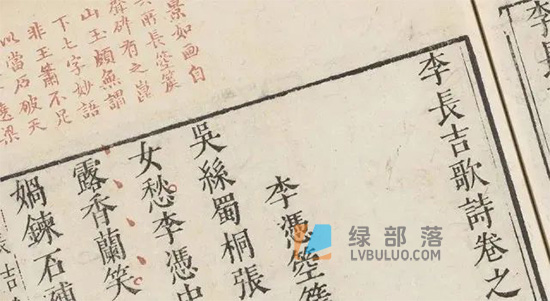 李長
李長吉歌詩卷之
李憑箜篌
吳絲蜀桐張
女愁李憑中
露香蘭笑
媧鍊石補
景如画自
其所長箜篌
聲碎有之崑
山玉頗無謂
下七字妙語
非玉簫不足
以當石破天
遶梁
绿部落
LVBULUO.COM